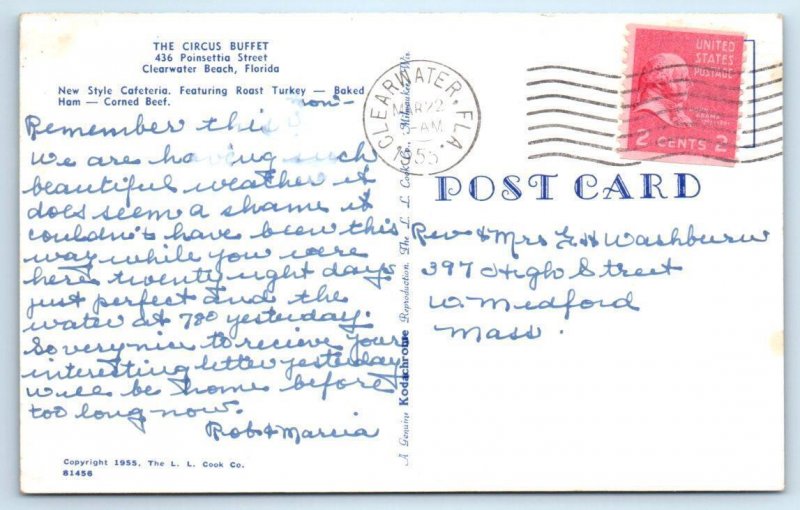 THE CIRCUS BUFFET
436 Poinsettia Street
Clearwater Beach, Florida
New Style Cafeteria. Featuring Roast Turkey — Baked
Ham — Corned Beef.
now -
Remember this
We are having such
beautiful weather it
does seem a shame it
couldn't have been this
way while you were
here twenty eight days
just perfect and the
water at 780 yesterday.
So very nice to recieve your
interesting letter yesterday
will be home before
too long now.
Rob & Marcia
Copyright 1955, The L. L. Cook Co.
81456
A Genuine Kodachrome Reproduction. The L. L. Cook Co., Milwaukee, Wis.
CLEARWATER, FLA.
MAR 22
AM
1955
UNITED
STATES
POSTAGE
JOHN
ADAMS
2 CENTS 2
POST CARD
Rev & Mrs G H Washburn
397 High Street
W. Medford
Mass.